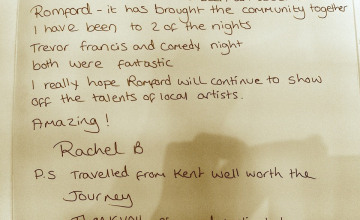 Romford - it has brought the community together
I have been to 2 of the nights
Trevor francis and comedy night
both were fantastic
I really hope Romford will continue to show
off the talents of local artists.
Amazing!
Rachel B
P.S Travelled from Kent well worth the
Journey